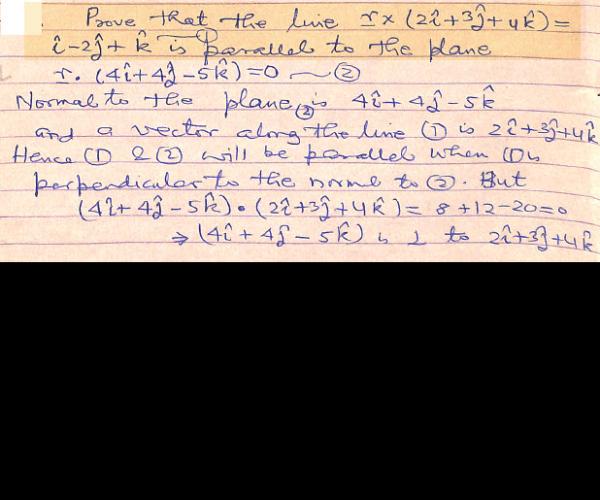 Prove that the line r × (2î+3ĵ+4k̂) =
î-2ĵ+k̂ is parallel to the plane
r. (4î+4ĵ-5k̂)=0 — ②
Normal to the plane ② is 4î+4ĵ-5k̂
and a vector along the line ① is 2î+3ĵ+4k̂
Hence ① & ② will be parallel when ① is
perpendicular to the normal to ②. But
(4î+4ĵ-5k̂)•(2î+3ĵ+4k̂)= 8+12-20=0
⇒ (4î+4ĵ-5k̂) is ⊥ to 2î+3ĵ+4k̂